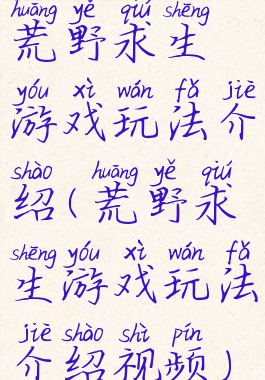 huāng yě qiú shēng
荒野求生
yóu xì wán fǎ jiè
游戏玩法介
shào huāng yě qiú
绍(荒野求
shēng yóu xì wán fǎ
生游戏玩法
jiè shào shì pín
介绍视频)